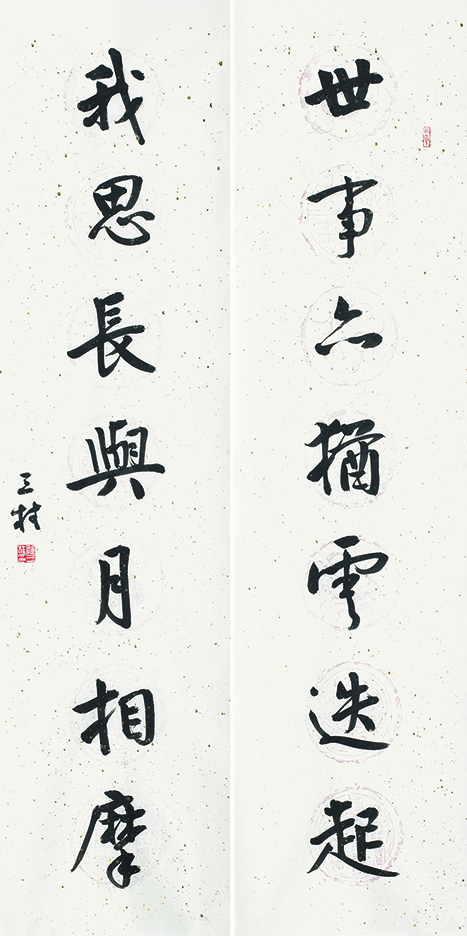 世事亦猶雲迭起
我思長與月相摩
三柱